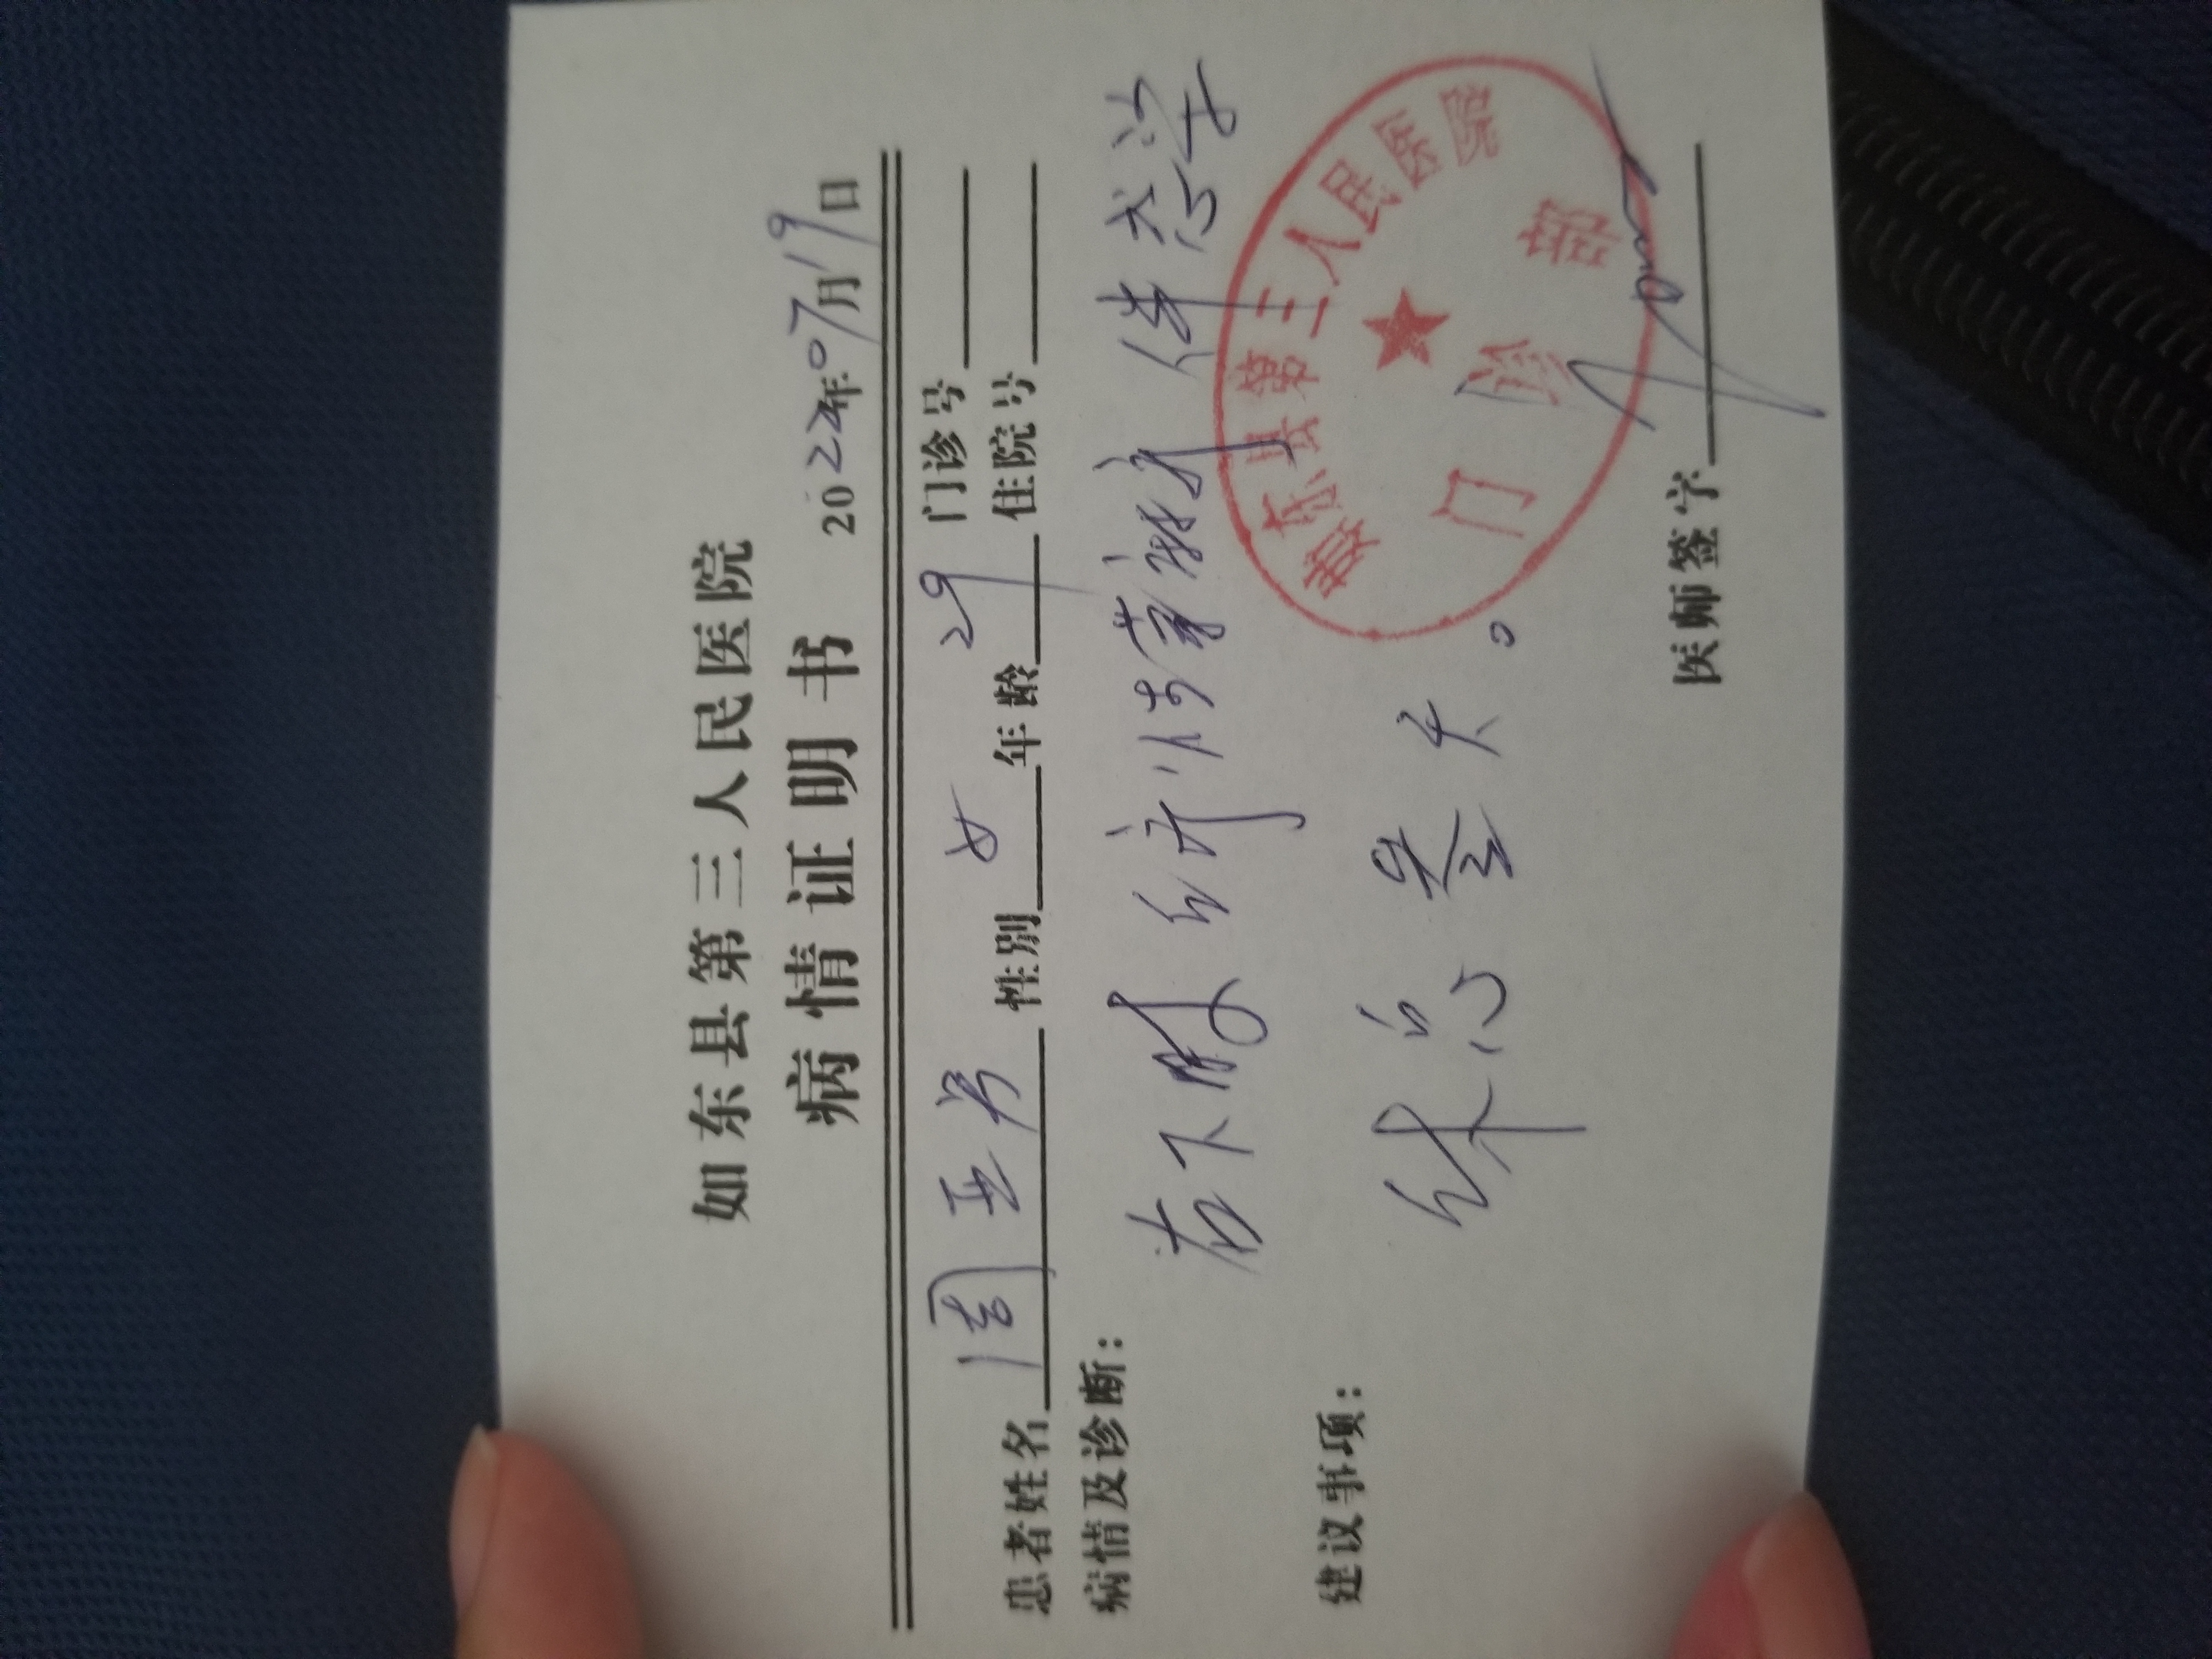 如东县第三人民医院
病情证明书 2022年07月19日
门诊号
患者姓名 周亚芳 性别 女 年龄 29 住院号
病情及诊断:
右下肢 伴感染
建议事项:
休息叁天。
如东县第三人民医院
门诊部
医师签字